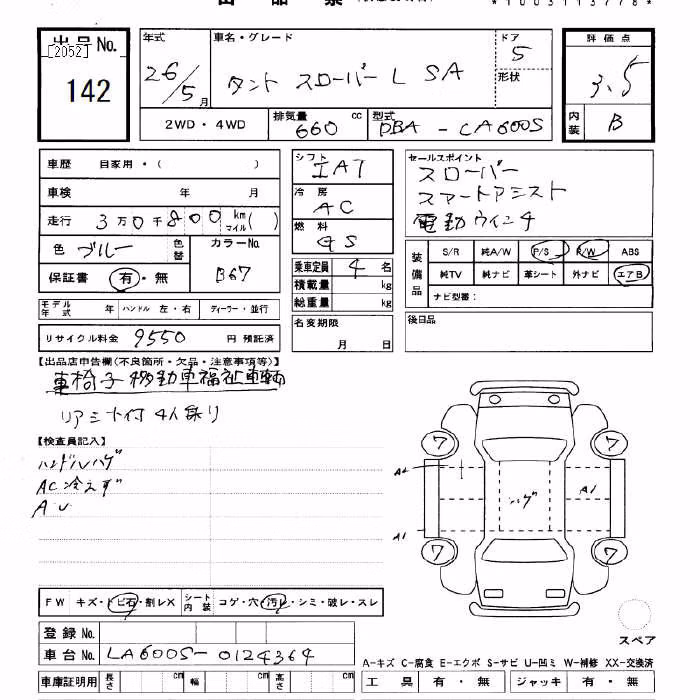 出品No.
[2052]
142
年式 26/5月
車名・グレード タント スローパー L SA
ドア 5
形状
評価点 3.5
内装 B
2WD・4WD
排気量 660 cc
型式 DBA - CA600S
車歴 自家用・( )
車検 年 月
走行 3万0千800 km マイル( )
色 ブルー 色替
カラーNo. B67
保証書 有・無
モデル年式 年
ハンドル 左・右
ディーラー・並行
リサイクル料金 9550 円 預託済
シフト IAT
冷房 AC
燃料 GS
乗車定員 4 名
積載量 kg
総重量 kg
名変期限
月 日
セールスポイント
スローパー
スマートアシスト
電動ウインチ
装備品
S/R 純A/W P/S P/W ABS
純TV 純ナビ 革シート 外ナビ エアB
ナビ型番:
後日品
【出品店申告欄(不良箇所・欠品・注意事項等)】
車椅子移動車福祉車輌
リアシート付 4人乗り
【検査員記入】
ハンドルハゲ
AC冷えず
A.U
7
7
A2
ハゲ
A1
A1
7
7
FW キズ・トビ石・割レX
シート内装 コゲ・穴・汚レ・シミ・破レ・スレ
登録No.
車台No. LA600S-0124364
車庫証明用 長さ cm 幅 cm 高さ cm
スペア
A-キズ C-腐食 E-エクボ S-サビ U-凹ミ W-補修 XX-交換済
工具 有・無 ジャッキ 有・無